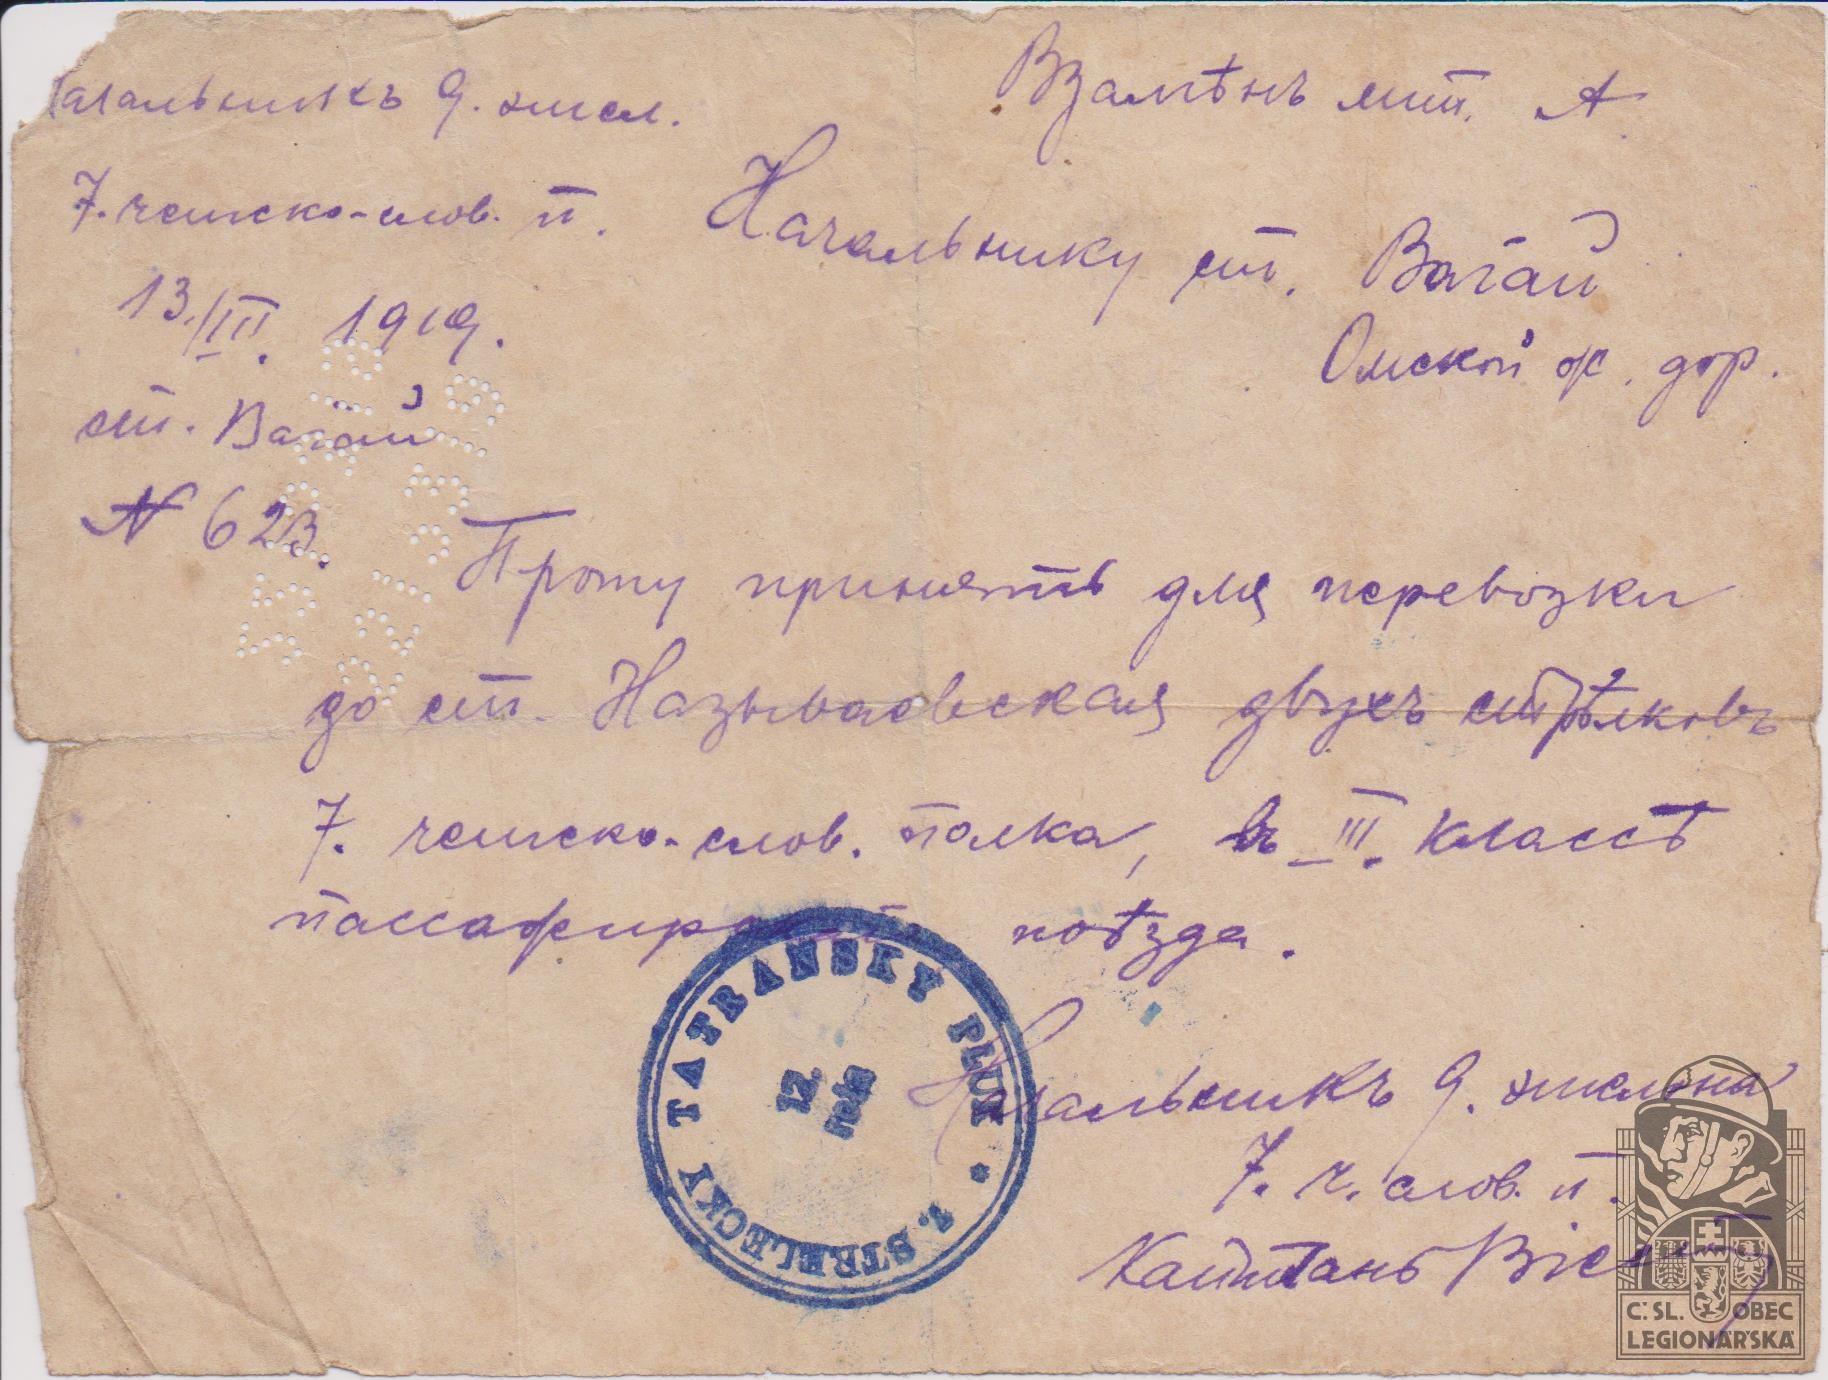 Начальникъ 9. эшел.
7. чешско-слов. п.
13./III. 1919.
ст. Вагай
N 623.
Взамѣнъ лит. А
Начальнику ст. Вагай
Омской ж. дор.
Прошу принять для перевозки
до ст. Называевская двухъ стрѣлковъ
7. чешско-слов. полка, въ III. классѣ
поѣзда.
7. STRELECKY TATRANSKY PLUK *
12.
rota
Начальникъ 9. эшелона
7. ч. слов. п.
Капитанъ
Č.SL. OBEC
LEGIONÁŘSKÁ